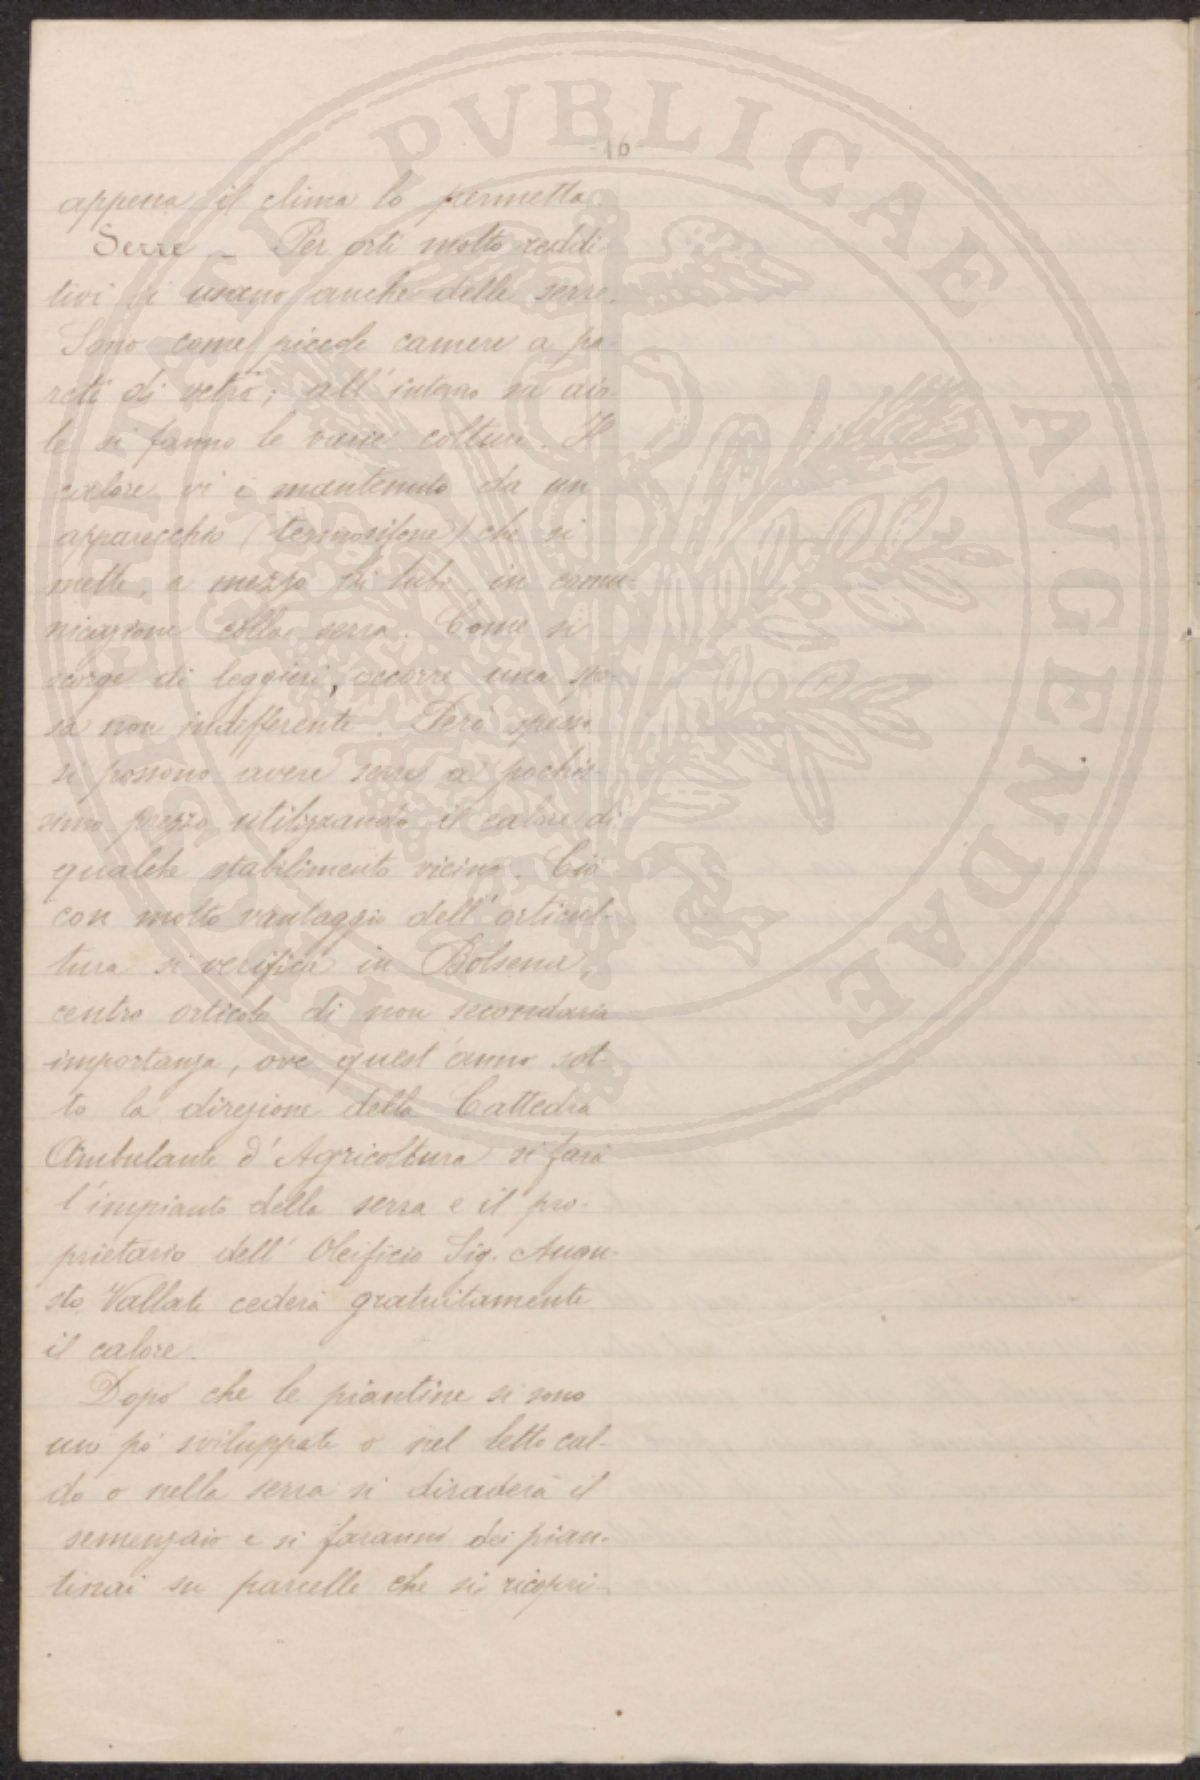 16
appena il clima lo permetta.
Serre – Per orti molto reddi
tivi si usano anche delle serre.
Sono come piccole camere a pa-
reti di vetro; all'interno su aio-
le si fanno le varie colture. Il
calore vi è mantenuto da un
apparecchio (termosifone) che si
mette, a mezzo di tubi, in comu-
nicazione colla serra. Come si
scorge di leggieri, occorre una spe-
sa non indifferente. Però spesso
si possono avere serre a pochis-
simo prezzo utilizzando il calore di
qualche stabilimento vicino. Ciò
con molto vantaggio dell'orticul-
tura si verifica in Bolsena,
centro orticolo di non secondaria
importanza, ove quest'anno sot-
to la direzione della Cattedra
Ambulante d'Agricoltura si farà
l'impianto della serra e il pro-
prietario dell'Oleificio Sig. Augu-
sto Vallati cederà gratuitamente
il calore.
Dopo che le piantine si sono
un pò sviluppate o nel letto cal-
do o nella serra si diraderà il
semenzaio e si faranno dei pian-
tinai su parcelle che si ricopri-
PVBLICAE AVGENDAE